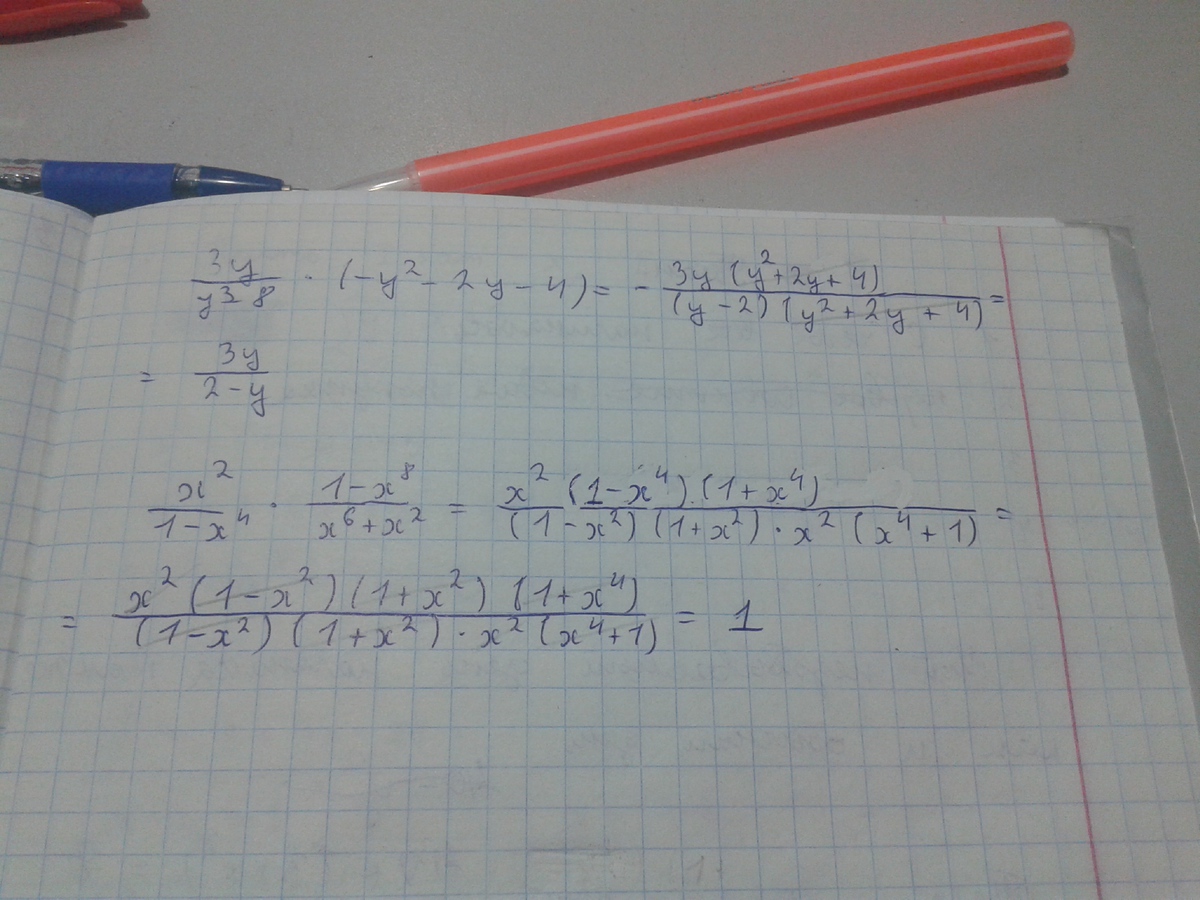 3y/(y³-8) · (-y² - 2y - 4) = - 3y (y² + 2y + 4)/((y - 2) (y² + 2y + 4)) =
= 3y/(2 - y)
x²/(1 - x⁴) · (1 - x⁸)/(x⁶ + x²) = x² (1 - x⁴) (1 + x⁴)/((1 - x²) (1 + x²) · x² (x⁴ + 1)) =
= x² (1 - x²) (1 + x²) (1 + x⁴)/((1 - x²) (1 + x²) · x² (x⁴ + 1)) = 1